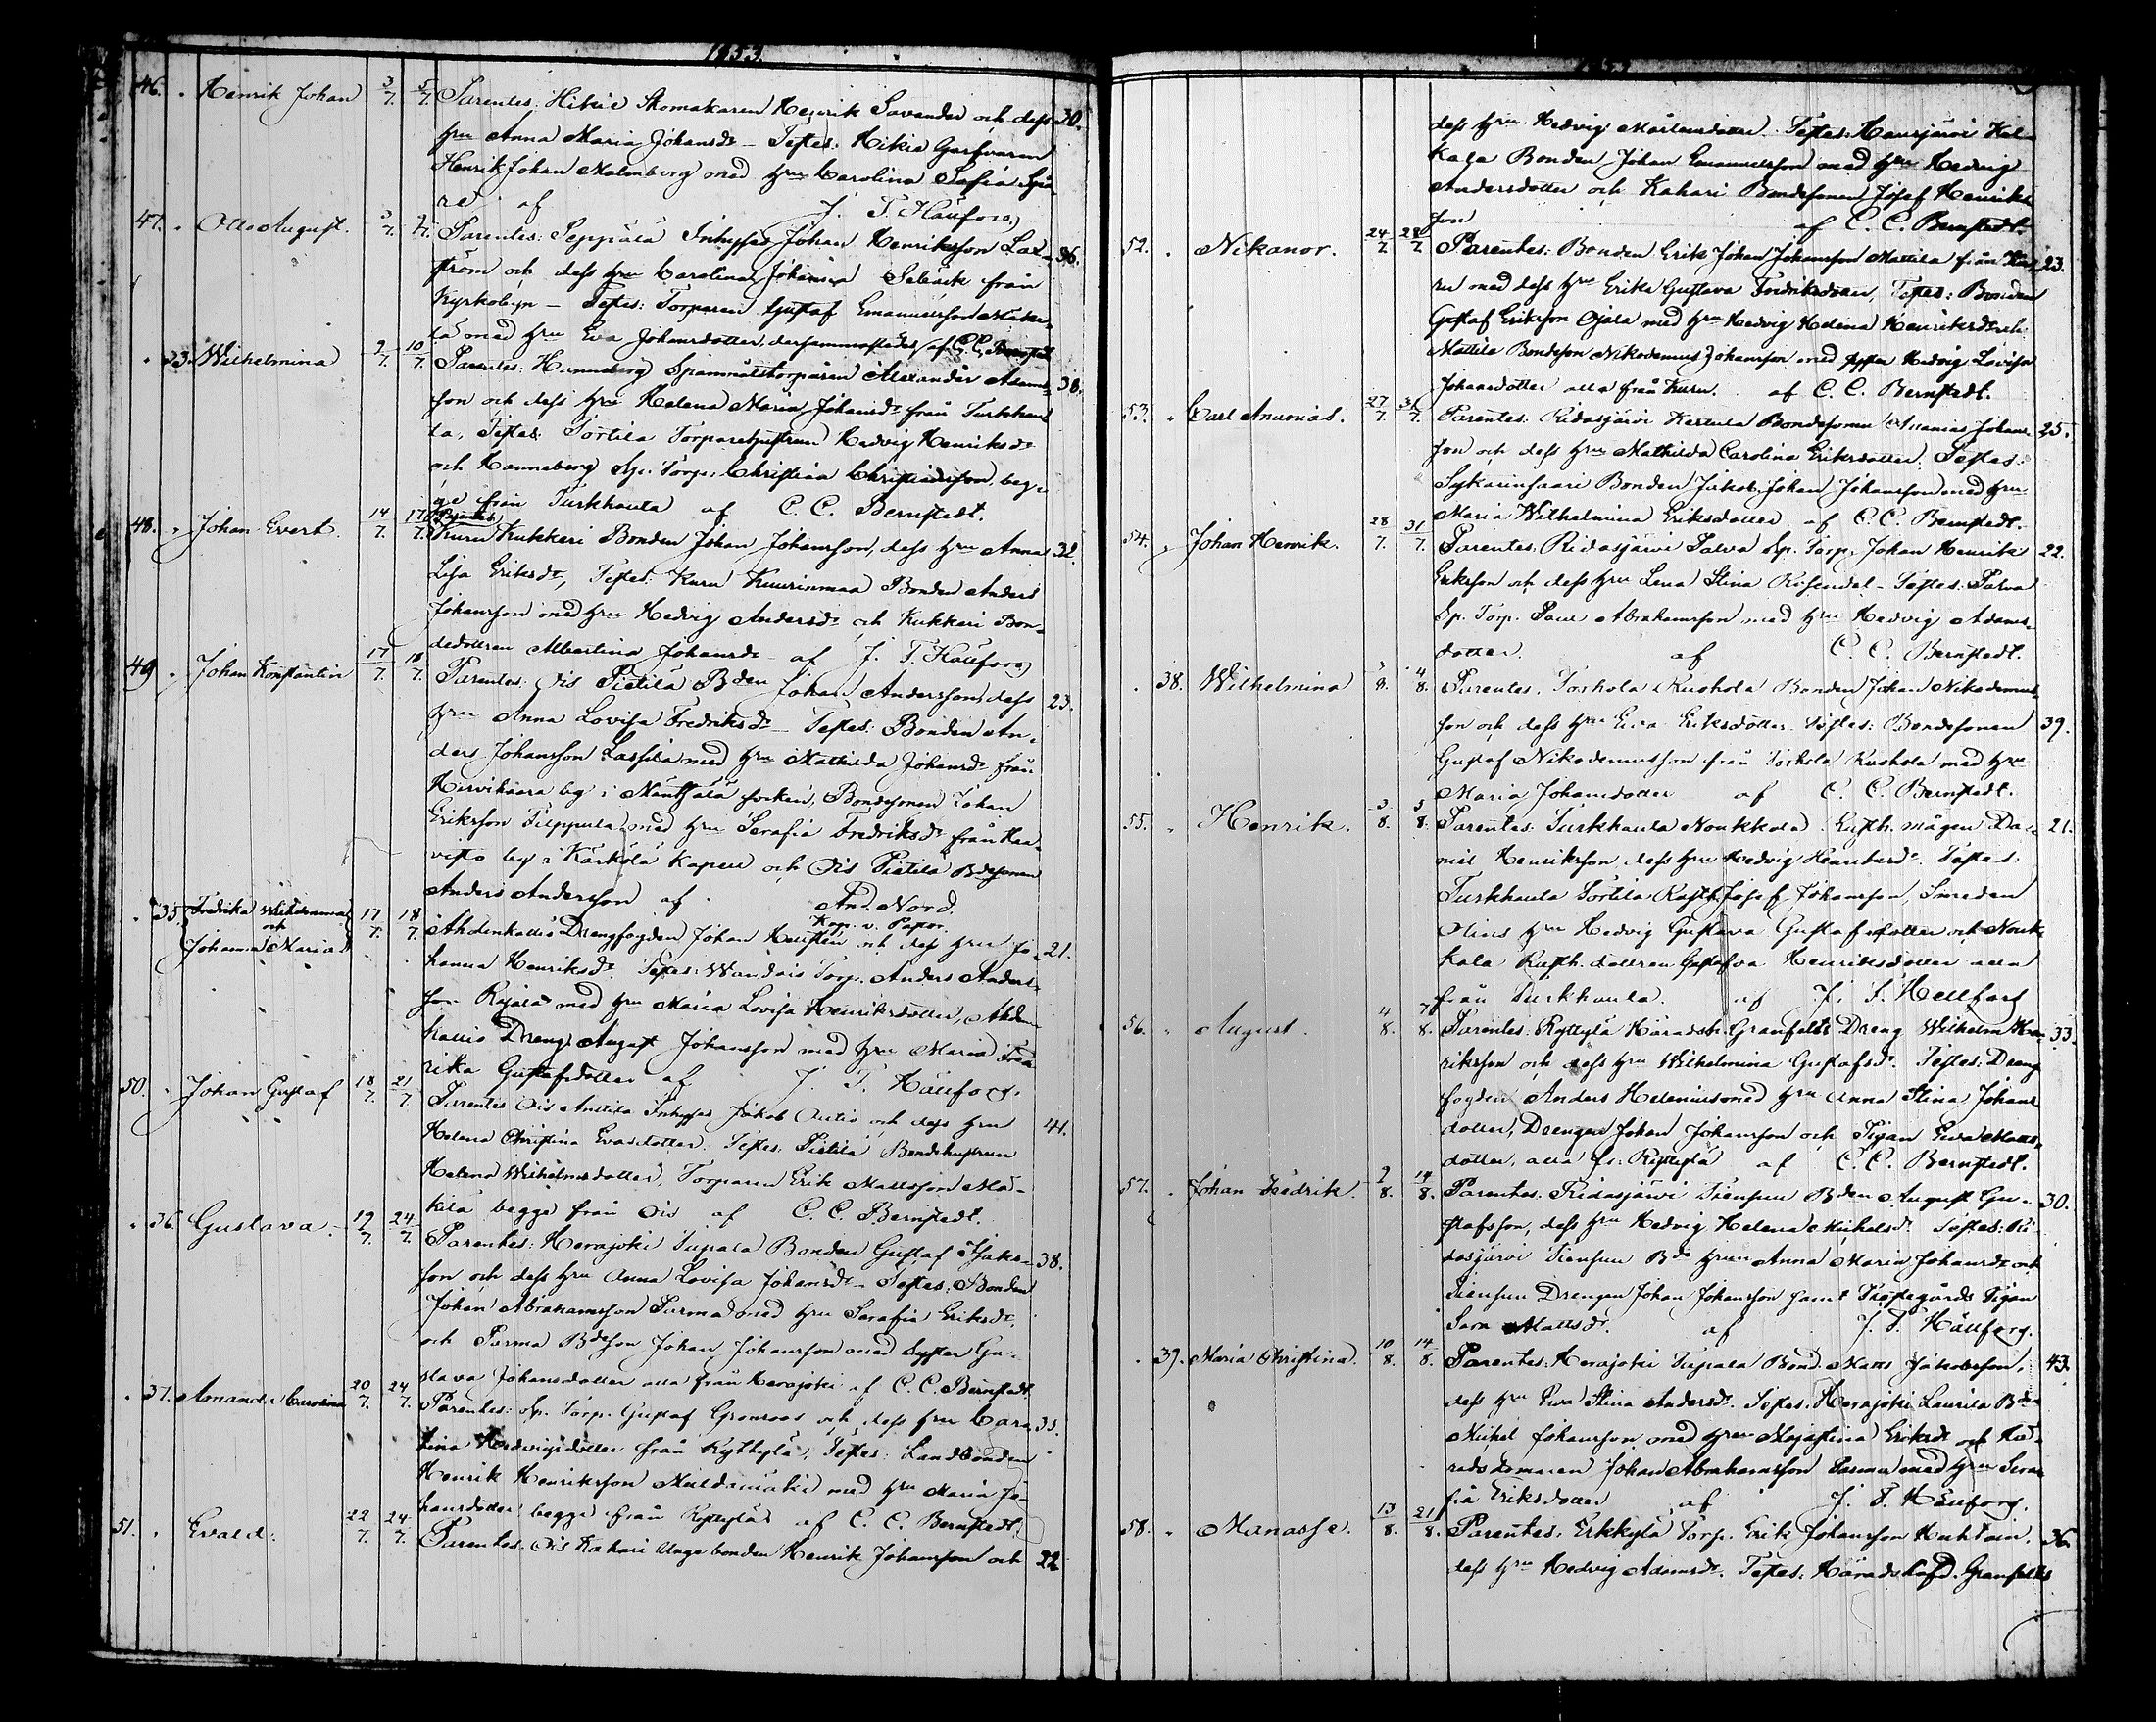 1853.
46. Henrik Johan 3/7. 5/7. Parentes: Hikie Skomakaren Henrik Savander och dess 30.
hru Anna Maria Johansdr - Testes: Hikie Garfvaren
Henrik Johan Malmberg med hru Carolina Sofia
af J. T. Hällfors
47. Otto August. 3/7. Parentes: Seppälä Inhyses Johan Henriksson 36.
ström och dess hru Carolina Johanna från
Kyrkobyn - Testes: Torparen Gustaf Emanuelsson
med hru Eva Johansdotter, dersammastädes af C. C. Bernstedt
33. Wilhelmina 9/7. 10/7. Parentes: Hanneberg Spannmålstorparen Alexander Adams- 38.
son och dess hru Helena Maria Johansdr från Turkhau-
ta, Testes: Torparehustrun Hedvig Henriksdr
och Hanneberg Sp. Torp. Christian Christiansson, beg-
ge från Turkhauta af C. C. Bernstedt.
48. Johan Evert. 14/7. 17/7. Parentes
Kuru Kukkeri Bonden Johan Johansson, dess hru Anna 32.
Lisa Eriksdr, Testes: Kuru Kuurinmaa Bonden Anders
Johansson med hru Hedvig Andersdr och Kukkeri Bon-
dedottren Albertina Johansdr af J. T. Hällfors
49. Johan Konstantin 17/7. 18/7. Parentes: Ois Pietilä Bden Johan Andersson, dess 23.
hru Anna Lovisa Fredriksdr - Testes: Bonden An-
ders Johansson Lassila med hru Mathilda Johansdr från
Hirvihaara by i Mäntsälä socken, Bondesonen Johan
Eriksson Tilppula med hru Serafia Fredriksdr från Haa-
visto by i Kärkölä Kapell och Ois Pietilä Bdesonen
Anders Andersson af And. Nord.
Kap. v. Pastor.
35. Fredrika Wilhelmina 17/7. 18/7.
och
Johanna Maria
Ahdenkallio Drengfogden Johan och dess hru Jo- 21.
hanna Henriksdr. Testes: Torp. Anders Anders-
son Rajala med hru Maria Lovisa Henriksdotter, Ahden-
kallio Dreng August Johansson med hru Maria Fred-
rika Gustafsdotter af J. T. Hällfors.
50. Johan Gustaf 18/7. 21/7. Parentes Ois Anttila Inhyses Jakob och dess hru 41.
Helena Christina Evasdotter. Testes: Pietilä Bondehustrun
Helena Wilhelmsdotter, Torparen Erik Mattsson Mä-
kilä begge från Ois af C. C. Bernstedt.
36. Gustava 19/7. 24/7. Parentes: Herajoki Bonden Gustaf Isaks- 38.
son och dess hru Anna Lovisa Johansdr - Testes: Bonden
Johan Abrahamsson Parma med hru Serafia Eriksdr,
och Parma Bdeson Johan Johansson med Syster Gu-
stava Johansdotter alla från Herajoki af C. C. Bernstedt.
37. Amanda Carolina 20/7. 24/7. Parentes: Sp. Torp. Gustaf Grönroos och dess hru Caro- 33.
lina Hedvigsdotter från Ryttylä, Testes: Landbonden
Henrik Henriksson med hru Maria Jo-
hansdotter begge från Ryttylä af C. C. Bernstedt
51. Evald. 22/7. 24/7. Parentes: Ois Kahari Unge bonden Henrik Johansson och 22
dess hru Hedvig Mårtensdotter. Testes: Hausjärvi Kal-
Bonden Johan Emanuelsson med hru Hedvig
Andersdotter och Kahari Bondesonen Josef Henriks-
son af C. C. Bernstedt.
52. Nikanor. 24/7 28/7 Parentes: Bonden Erik Johan Johansson Mattila från Ku- 23.
ru med dess hru Erika Gustava Fredriksdotter, Testes: Bonden
Gustaf Eriksson Ojala med hru Hedvig Helena Henriksdr och
Mattila Bondeson Nikodemus Johansson med Syster Hedvig Lovisa
Johansdotter alla från Kuru. af C. C. Bernstedt.
53. Carl Ananias. 27/7. 31/7. Parentes: Ridasjärvi Bondesonen Ananias Johans- 25.
son och dess hru Mathilda Carolina Eriksdotter. Testes:
Bonden Jakob Johan Johansson med hru
Maria Wilhelmina Eriksdotter af C. C. Bernstedt.
54. Johan Henrik. 28/7. 31/7. Parentes: Ridasjärvi Salva Sp. Torp. Johan Henrik 22.
Eriksson och dess hru Lena Stina Rosendal - Testes: Salva
Sp. Torp. Paul Abrahamsson med hru Hedvig Adams-
dotter. af C. C. Bernstedt.
38. Wilhelmina 3/8. 4/8. Parentes: Torhola Ruohola Bonden Johan Nikodemus-
son och dess hru Eva Eriksdotter. Testes: Bondesonen 39.
Gustaf Nikodemusson från Torhola Ruohola med hru
Maria Johansdotter af C. C. Bernstedt.
55. Henrik. 3/8. 5/8. Parentes: Turkhauta Noukkola Rusth. mågen Da- 21.
niel Henriksson, dess hru Hedvig Henriksdr. Testes:
Turkhauta Rusth. Josef Johansson, Smeden
hru Hedvig Gustava Gustafsdotter och Nouk-
kola Rusth. dottren Gustafva Henriksdotter alla
från Turkhauta. af J. T. Hällfors
56. August. 4/8. 7/8. Parentes: Ryttylä Häradsh. Granfelts Dreng Wilhelm Hen- 33.
riksson och dess hru Wilhelmina Gustafsd. Testes: Dreng-
fogden Anders Helenius med hru Anna Stina Johans-
dotter, Drengen Johan Johansson och Pigan Eva Matts-
dotter, alla fr. Ryttylä af C. C. Bernstedt.
57. Johan Fredrik. 9/8. 14/8. Parentes: Ridasjärvi Bden August Gu- 30.
stafsson, dess hru Hedvig Helena Michelsdr. Testes: Ri-
dasjärvi Bde hrun Anna Maria Johansdr och
Drengen Johan Johansson samt Prestgårds Pigan
Sara Mattsdr. af J. T. Hällfors.
39. Maria Christina. 10/8. 14/8. Parentes: Herajoki Bond. Matts Jakobsson, 43.
dess hru Eva Stina Andersdr. Testes: Herajoki Laurila Bden
Mickel Johansson med hru Maja Stina Eriksdr och Hä-
radsdomaren Johan Abrahamsson Parma med hru Sera-
fia Eriksdotter af J. T. Hällfors.
58. Manasse. 13/8. 21/8. Parentes: Erkkylä Torp. Erik Johansson 36.
dess hru Hedvig Adamsdr. Testes: Häradshöfd. Granfelts